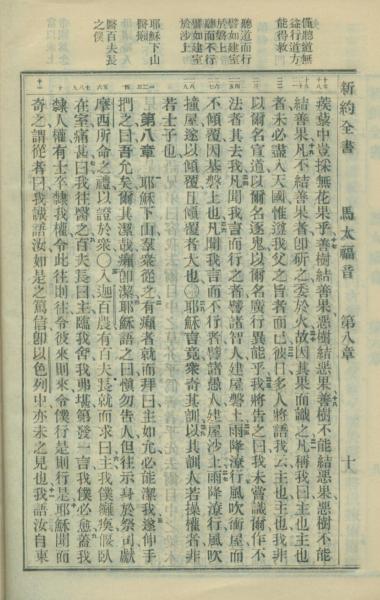 新約全書 馬太福音 第八章 十
僅聽道無
益行道方
能得救
聽道而行
譬如建室
於磐上
聽而不行
譬如建室
於沙上
耶穌下山
醫癩
醫百夫長
之僕
蒺藜中豈採無花果乎善樹結善果惡樹結惡果善樹不能結惡果惡樹不能
結善果凡不結善果者卽斫之委於火故因其果而識之凡稱我曰主也主也
者未必盡入天國惟遵我父之旨者而已彼日多人將語我云主也主也我非
以爾名宣道以爾名逐鬼以爾名廣行異能乎我將告之曰我未嘗識爾作不
法者其去我凡聞我言而行之者譬諸智人建屋磐上雨降潦行風吹衝屋而
不傾覆因基磐上也凡聞我言而不行者譬諸愚人建屋沙上雨降潦行風吹
撞屋遂以傾覆且傾覆者大也〇耶穌言竟衆奇其訓以其訓人若操權者非
若士子也
第八章 耶穌下山羣衆從之有癩者就而拜曰主如允必能潔我遂伸手
捫之曰吾允矣爾其潔哉癩卽潔耶穌語之曰愼勿告人但往示身於祭司獻
摩西所命之禮以證於衆〇入迦百農有百夫長就而求曰主我僕癱瘓偃臥
在室痛甚曰我往醫之百夫長曰主臨我舍我弗堪第發一言我僕必愈蓋我
隸人權有士卒隸我權令此往則往令彼來則來令僕行是則行是耶穌聞而
奇之謂從者曰我誠語汝如是之篤信卽以色列中亦未之見也我語汝自東